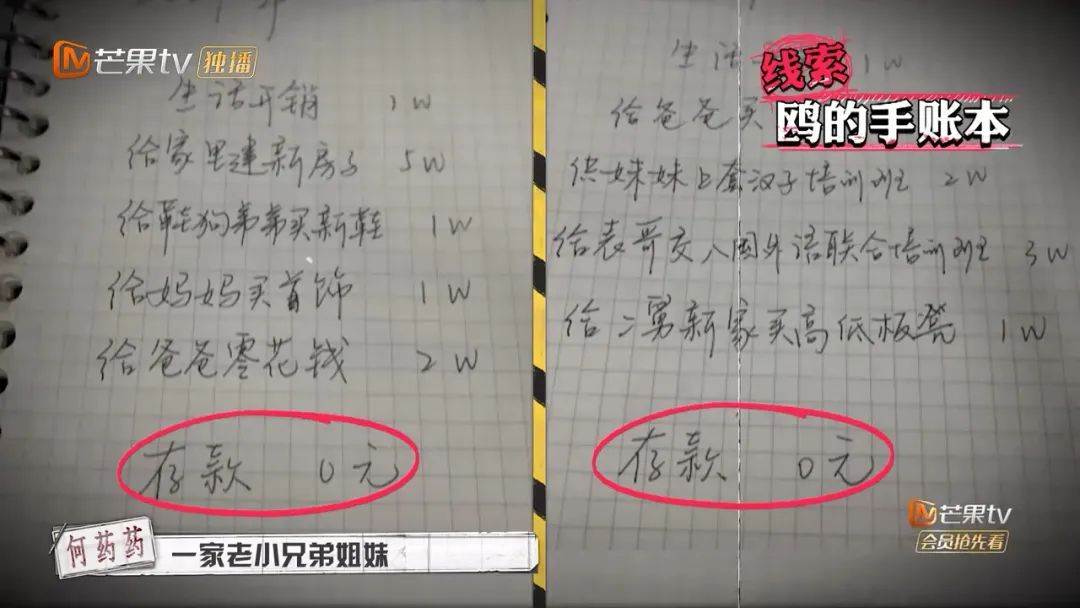 芒果tv 独播
生活开销 1W
给家里建新房子 5W
给鞋狗弟弟买新鞋 1W
给妈妈买首饰 1W
给爸爸零花钱 2W
存款 0元
线索
鸥的手账本
生活 1W
给爸爸买
供妹妹上套汉子培训班 2W
给表哥交八国外语联合培训班 3W
给二舅新家买高低板凳 1W
存款 0元
何药药
一家老小兄弟姐妹
芒果tv
会员抢先看